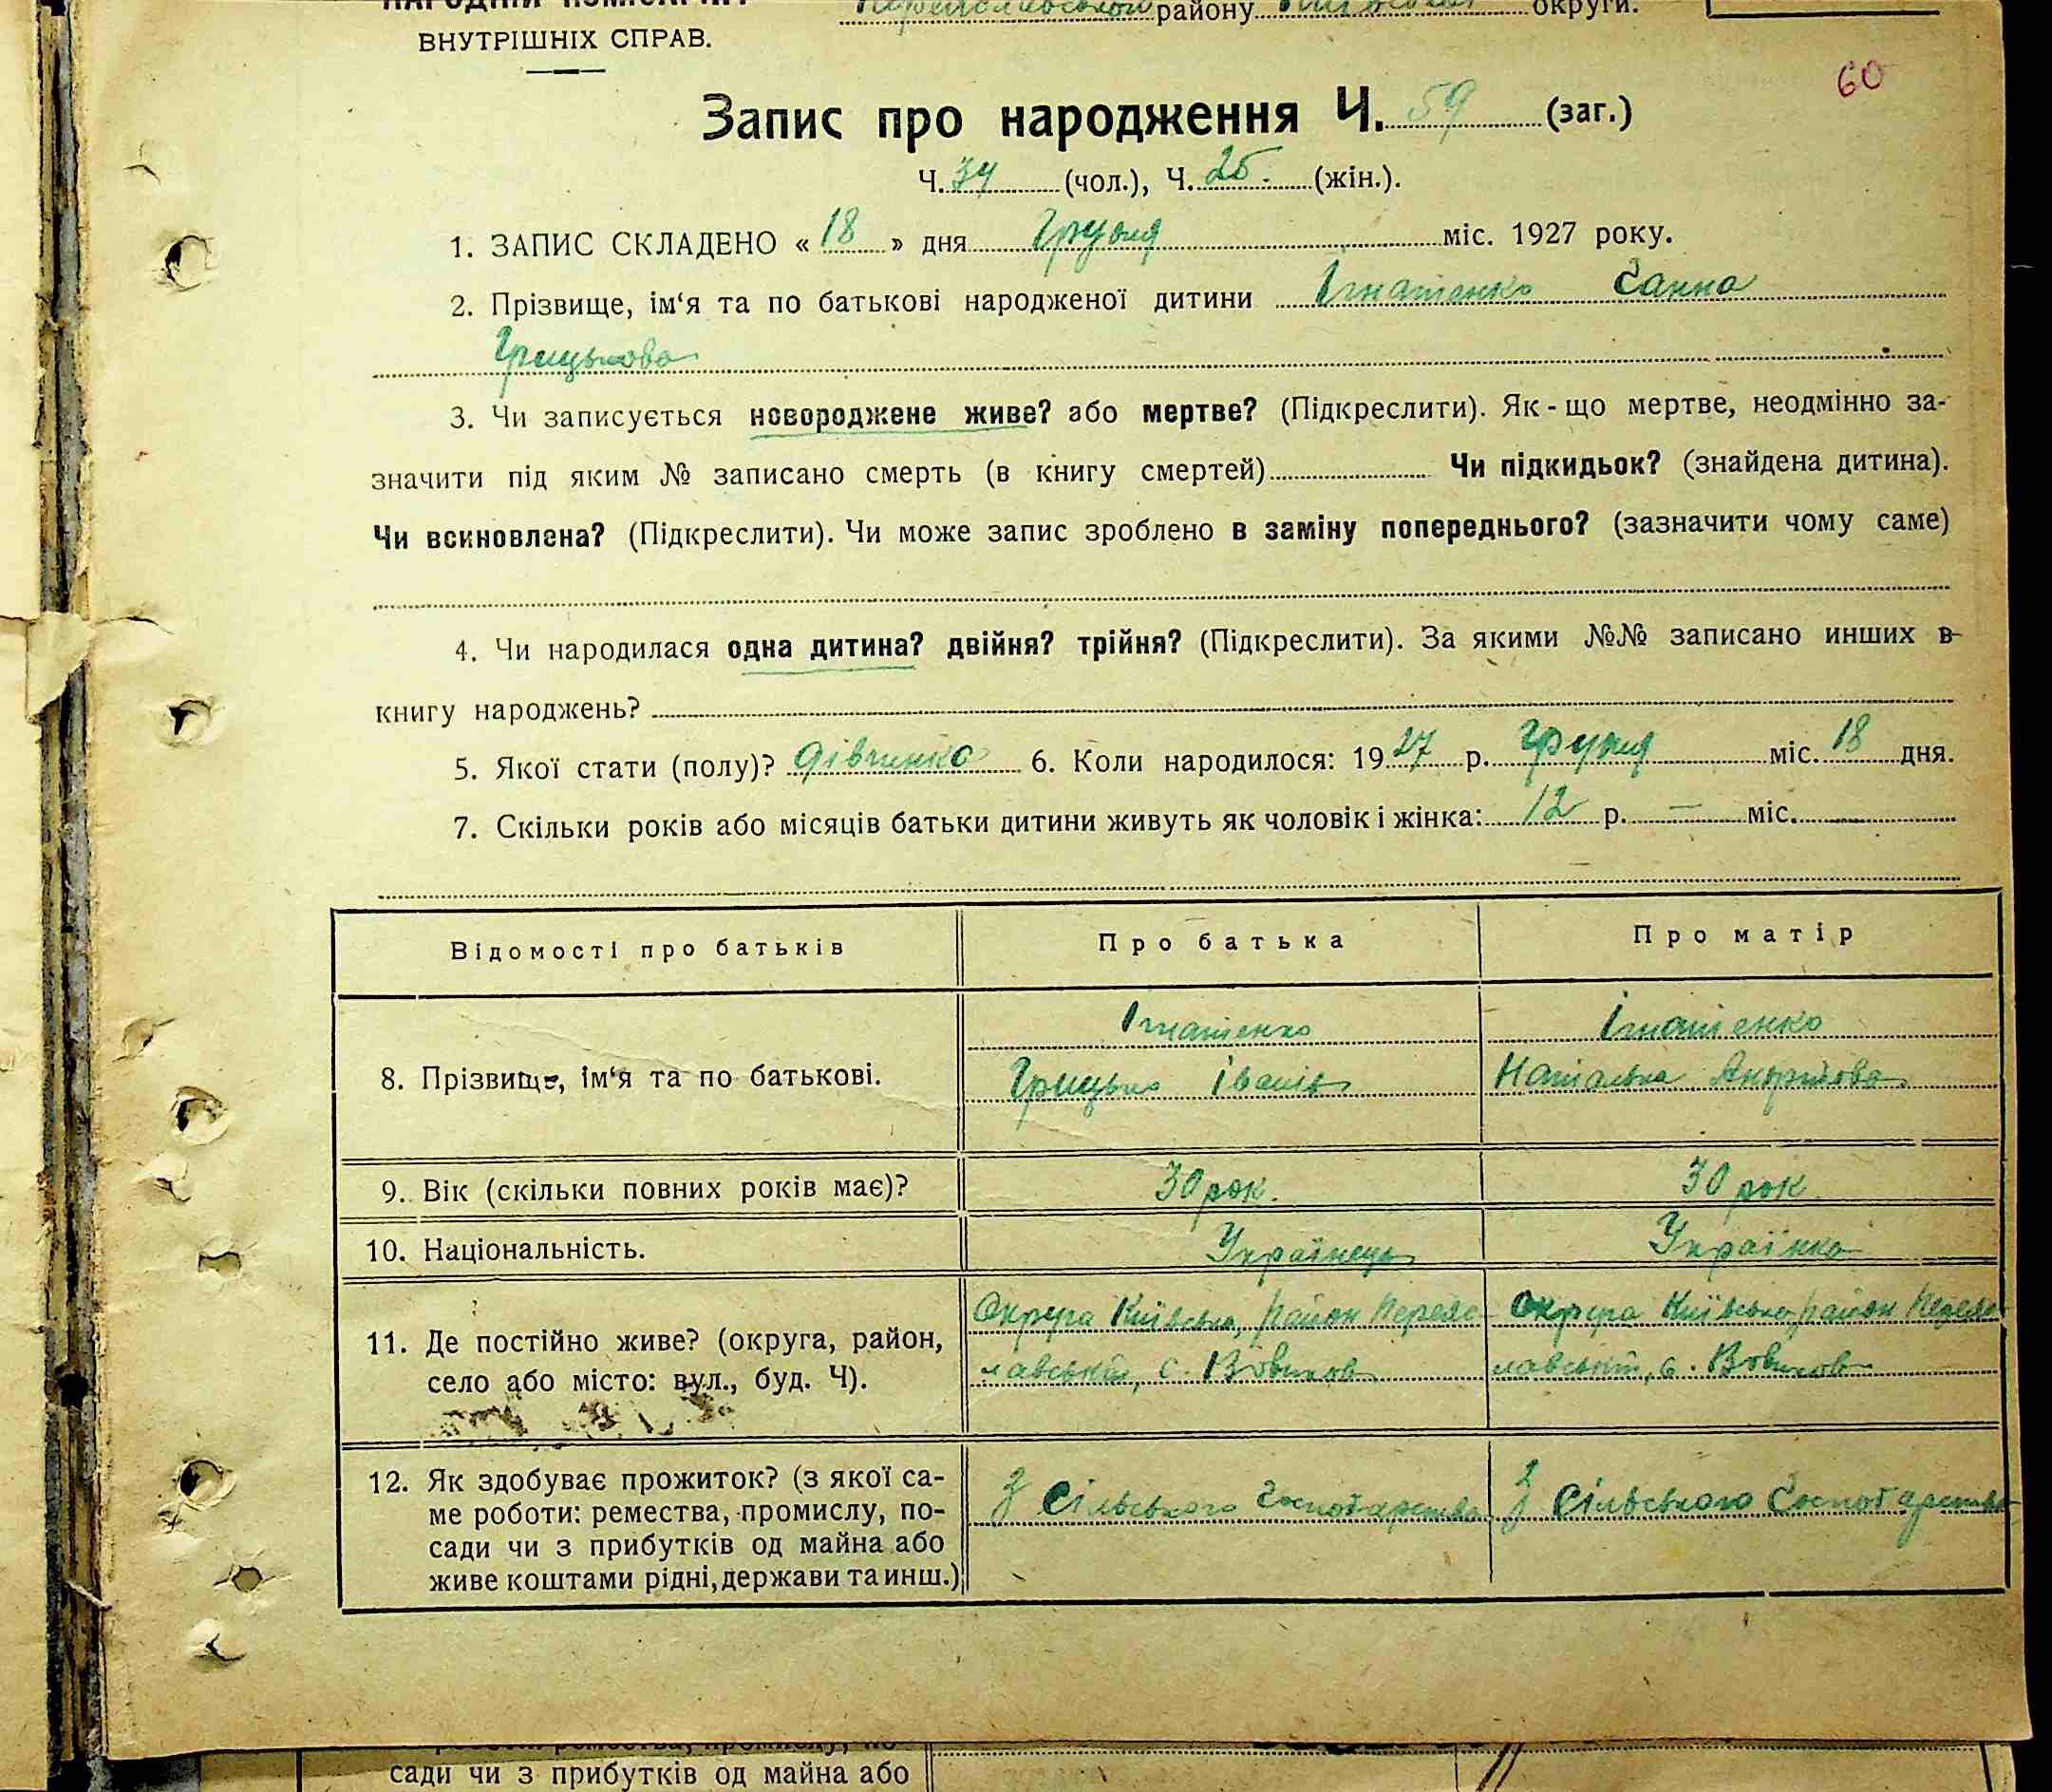 НАРОДНІЙ КОМІСАРІЯТ
Переяславського району Київської округи.
ВНУТРІШНІХ СПРАВ.
60
Запис про народження Ч. 59 (заг.)
Ч. 34 (чол.), Ч. 25. (жін.).
1. ЗАПИС СКЛАДЕНО « 18 » дня Грудня міс. 1927 року.
2. Прізвище, ім‘я та по батькові народженої дитини Ігнатенко Ганна
Грицькова
3. Чи записується новороджене живе? або мертве? (Підкреслити). Як-що мертве, неодмінно за-
значити під яким № записано смерть (в книгу смертей) Чи підкидьок? (знайдена дитина).
Чи всиновлена? (Підкреслити). Чи може запис зроблено в заміну попереднього? (зазначити чому саме)
4. Чи народилася одна дитина? двійня? трійня? (Підкреслити). За якими №№ записано инших в
книгу народжень?
5. Якої стати (полу)? дівчинка 6. Коли народилося: 1927 р. Грудня міс. 18 дня.
7. Скільки років або місяців батьки дитини живуть як чоловік і жінка: 12 р. — міс.
Відомості про батьків Про батька Про матір
Ігнатенко Ігнатенко
8. Прізвище, ім‘я та по батькові. Грицько Іванів Наталка Андрійова
9. Вік (скільки повних років має)? 30 рок. 30 рок
10. Національність. Українець Українка
Округа Київська, район Переяс- Округа Київська, район Переяс
11. Де постійно живе? (округа, район,
лавський, с. Вовчков лавський, с. Вовчков
село або місто: вул., буд. Ч).
12. Як здобуває прожиток? (з якої са-
ме роботи: ремества, промислу, по- З сільського господарства З сільського господарства
сади чи з прибутків од майна або
живе коштами рідні, держави та инш.)
сади чи з прибутків од майна або